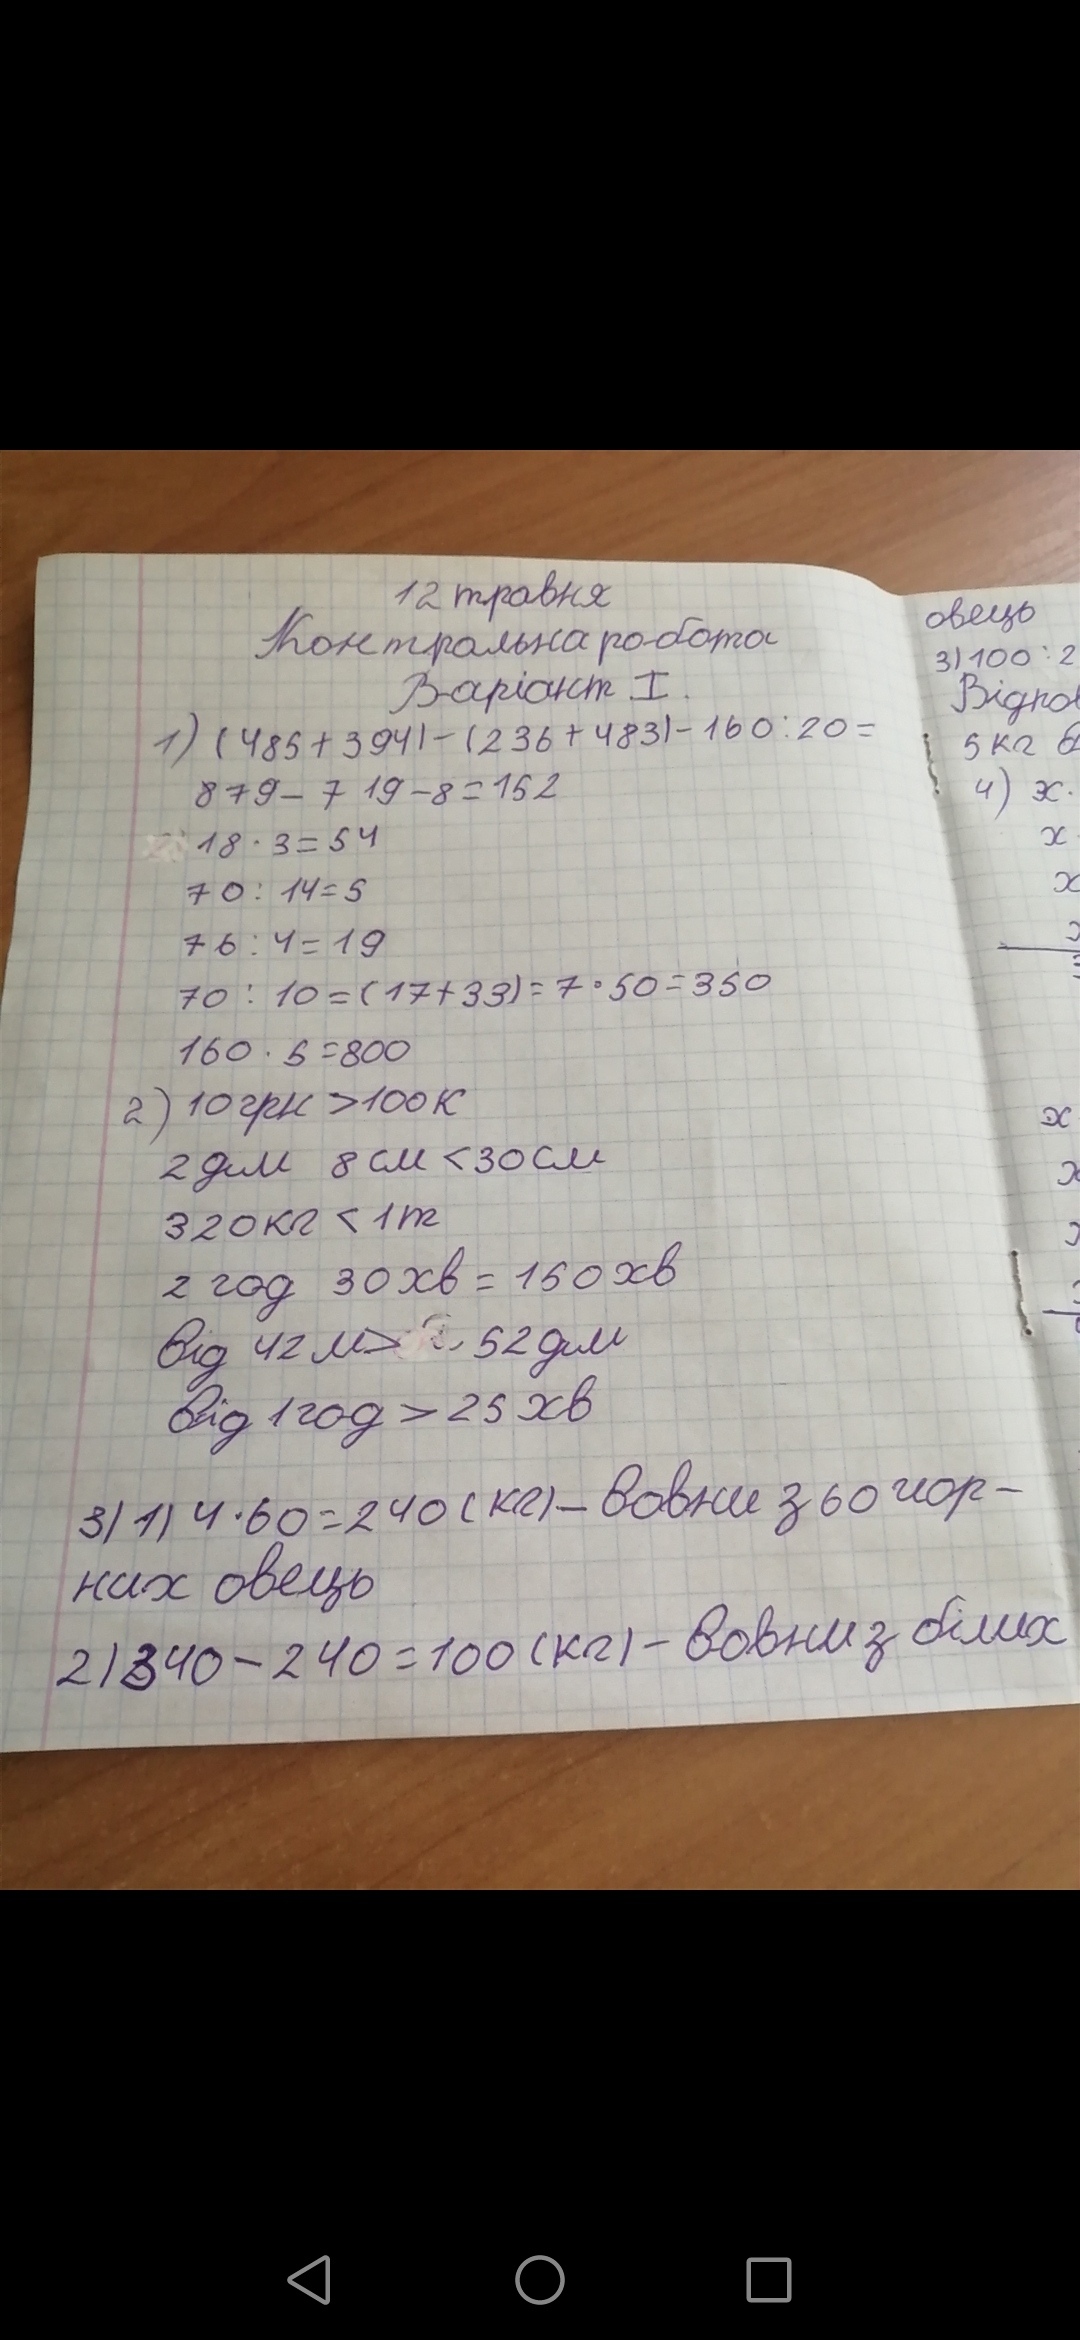 12 травня
Контрольна робота
Варіант I.
1) (485+394)-(236+483)-160:20=
879-719-8=152
18·3=54
70:14=5
76:4=19
70:10=(17+33)=7·50=350
160·5=800
2) 10грн>100к
2дм 8см<30см
320кг<1т
2 год 30хв=150хв
від 42м> 52дм
від 1год>25хв
3) 1) 4·60=240(кг)-вовни з 60 чор-
них овець
2) 340-240=100(кг)-вовни з білих
овець
3) 100:2
5кг
4) х·
х
х
х
х
х